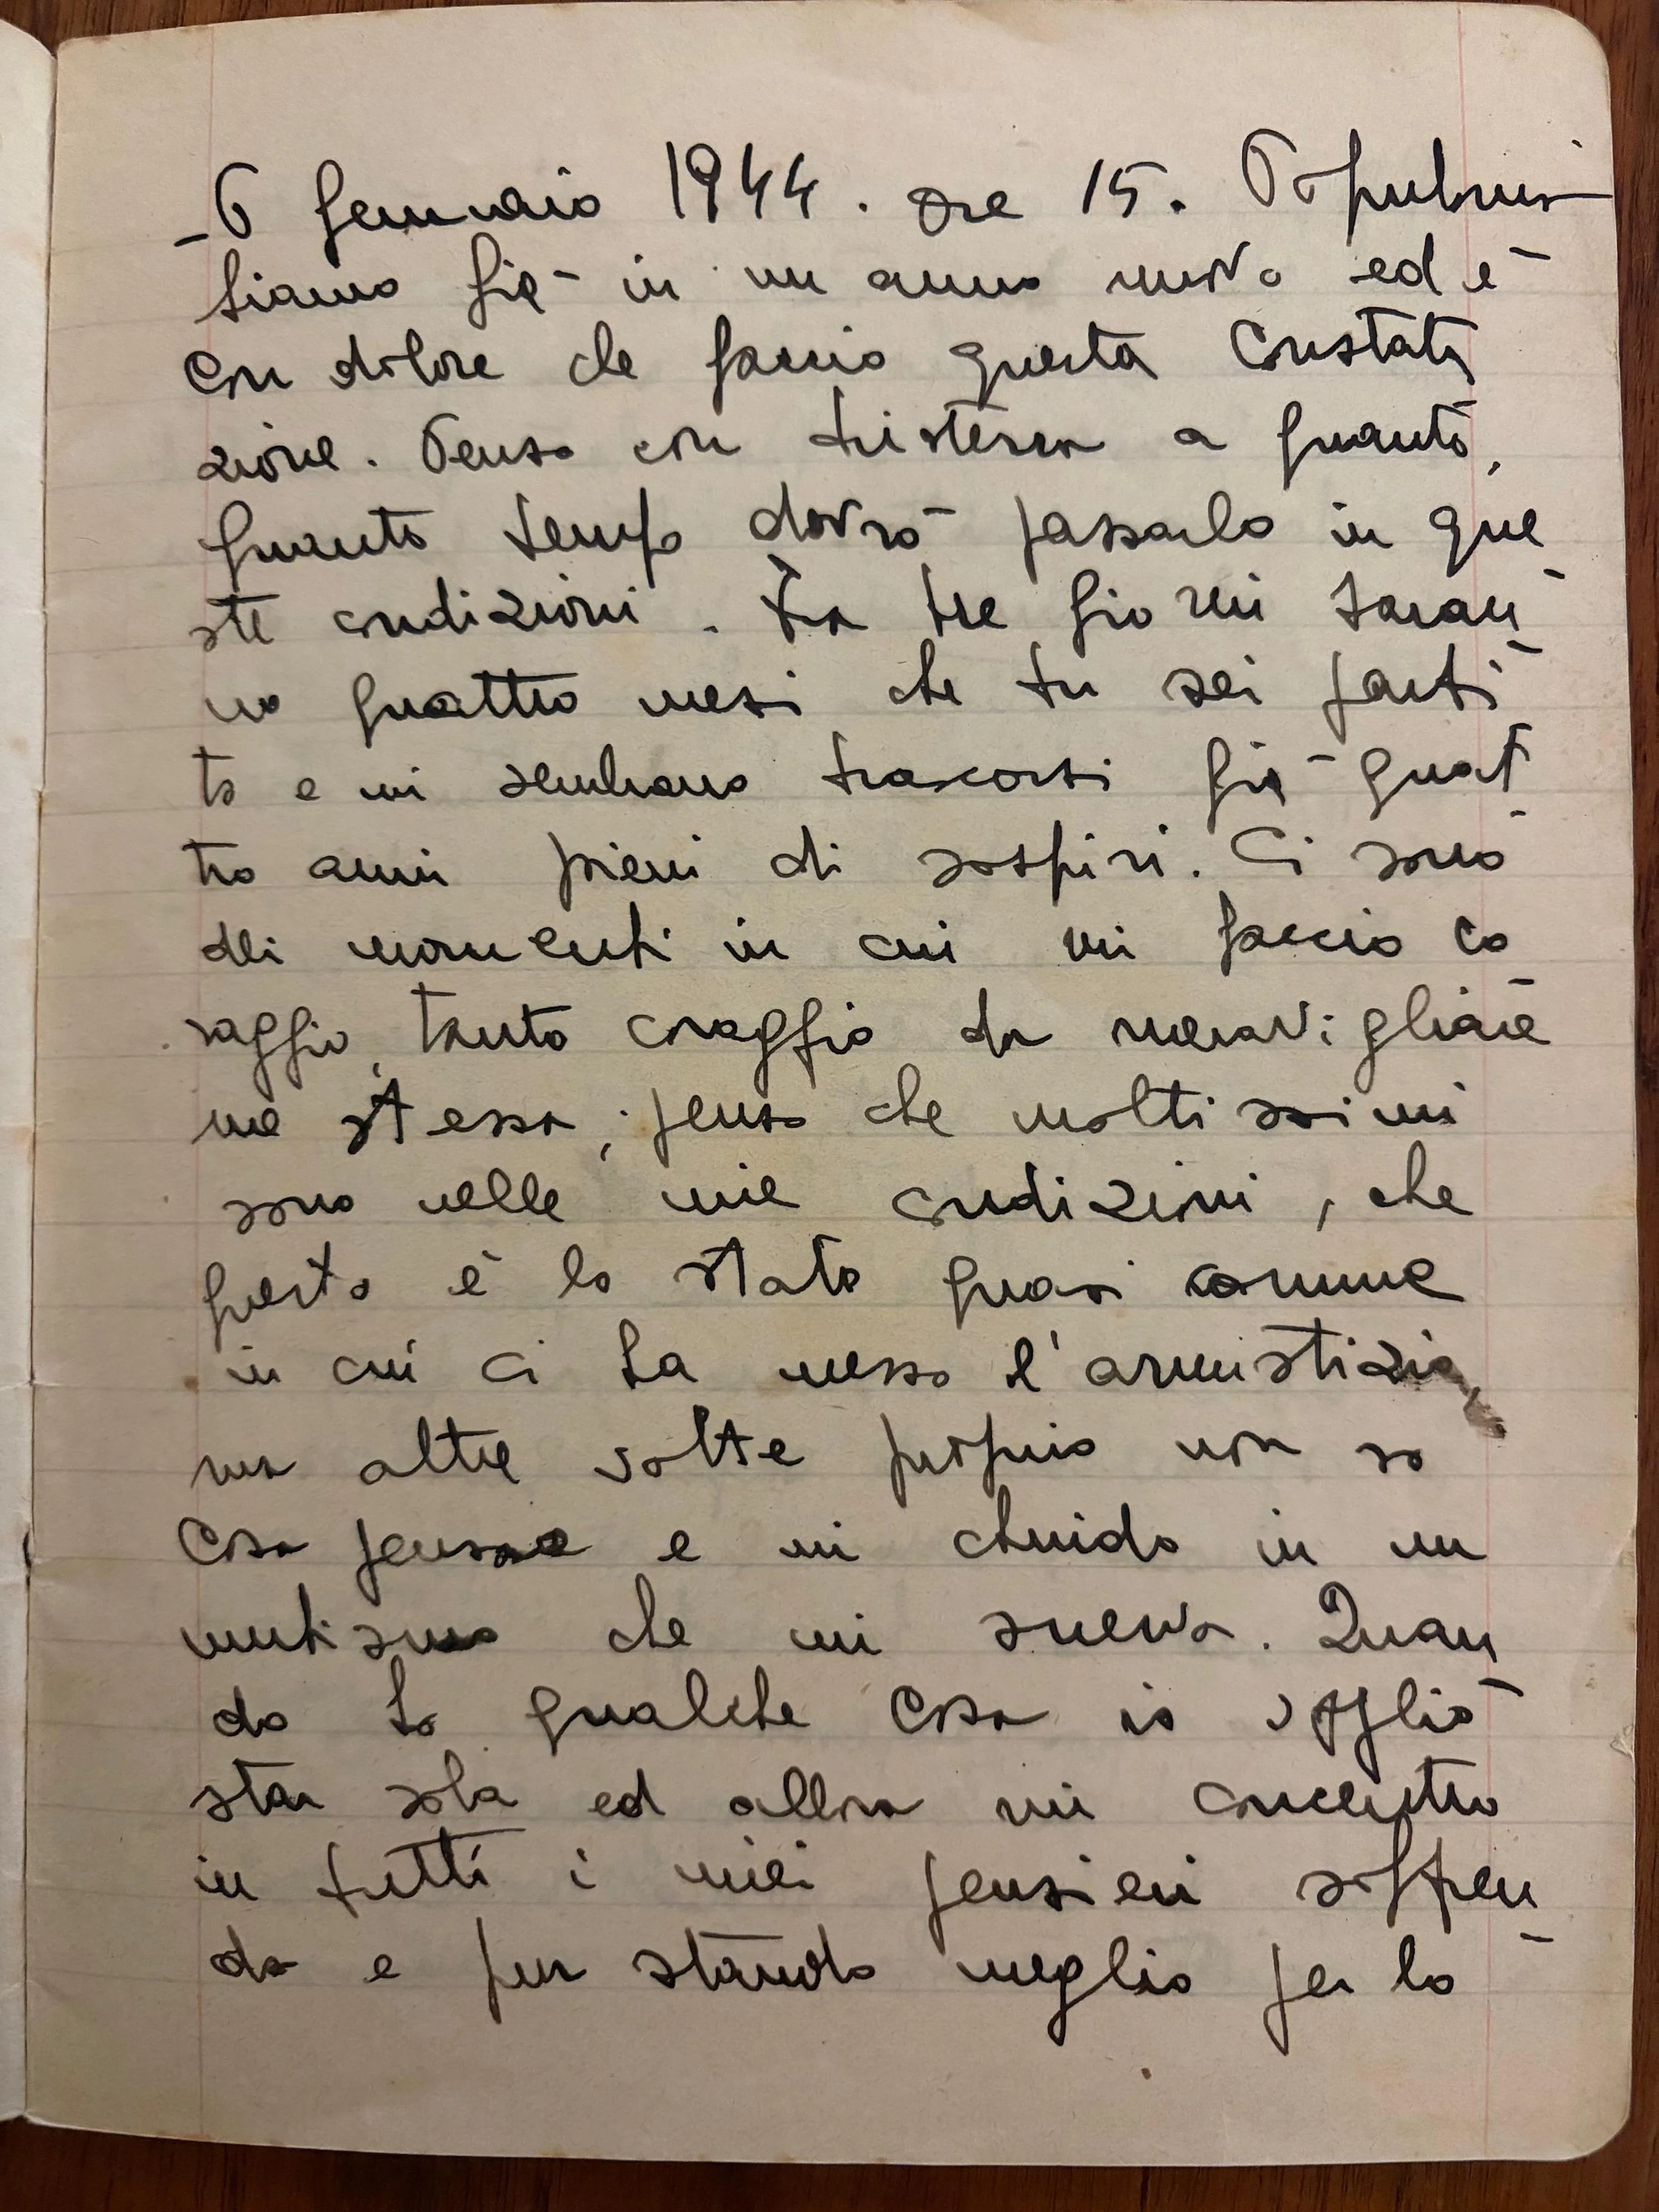 -6 Gennaio 1944. Ore 15. Populonia
Siamo già in un anno nuovo ed è
con dolore che faccio questa constata
zione. Penso con tristezza a quanto,
quanto tempo dovrò passarlo in que
ste condizioni. Fra tre giorni saran-
no quattro mesi che tu sei parti-
to e mi sembrano trascorsi già quat-
tro anni pieni di sospiri. Ci sono
dei momenti in cui mi faccio co
raggio, tanto coraggio da meravigliare
me stessa; penso che moltissimi
sono nelle mie condizioni, che
questo è lo stato quasi comune
in cui ci ha messo l'armistizio,
ma altre volte proprio non so
cosa pensare e mi chiudo in un
mutismo che mi snerva. Quan
do ho qualche cosa io voglio
star sola ed allora mi concentro
in tutti i miei pensieri soffren-
do e pur stando meglio per lo